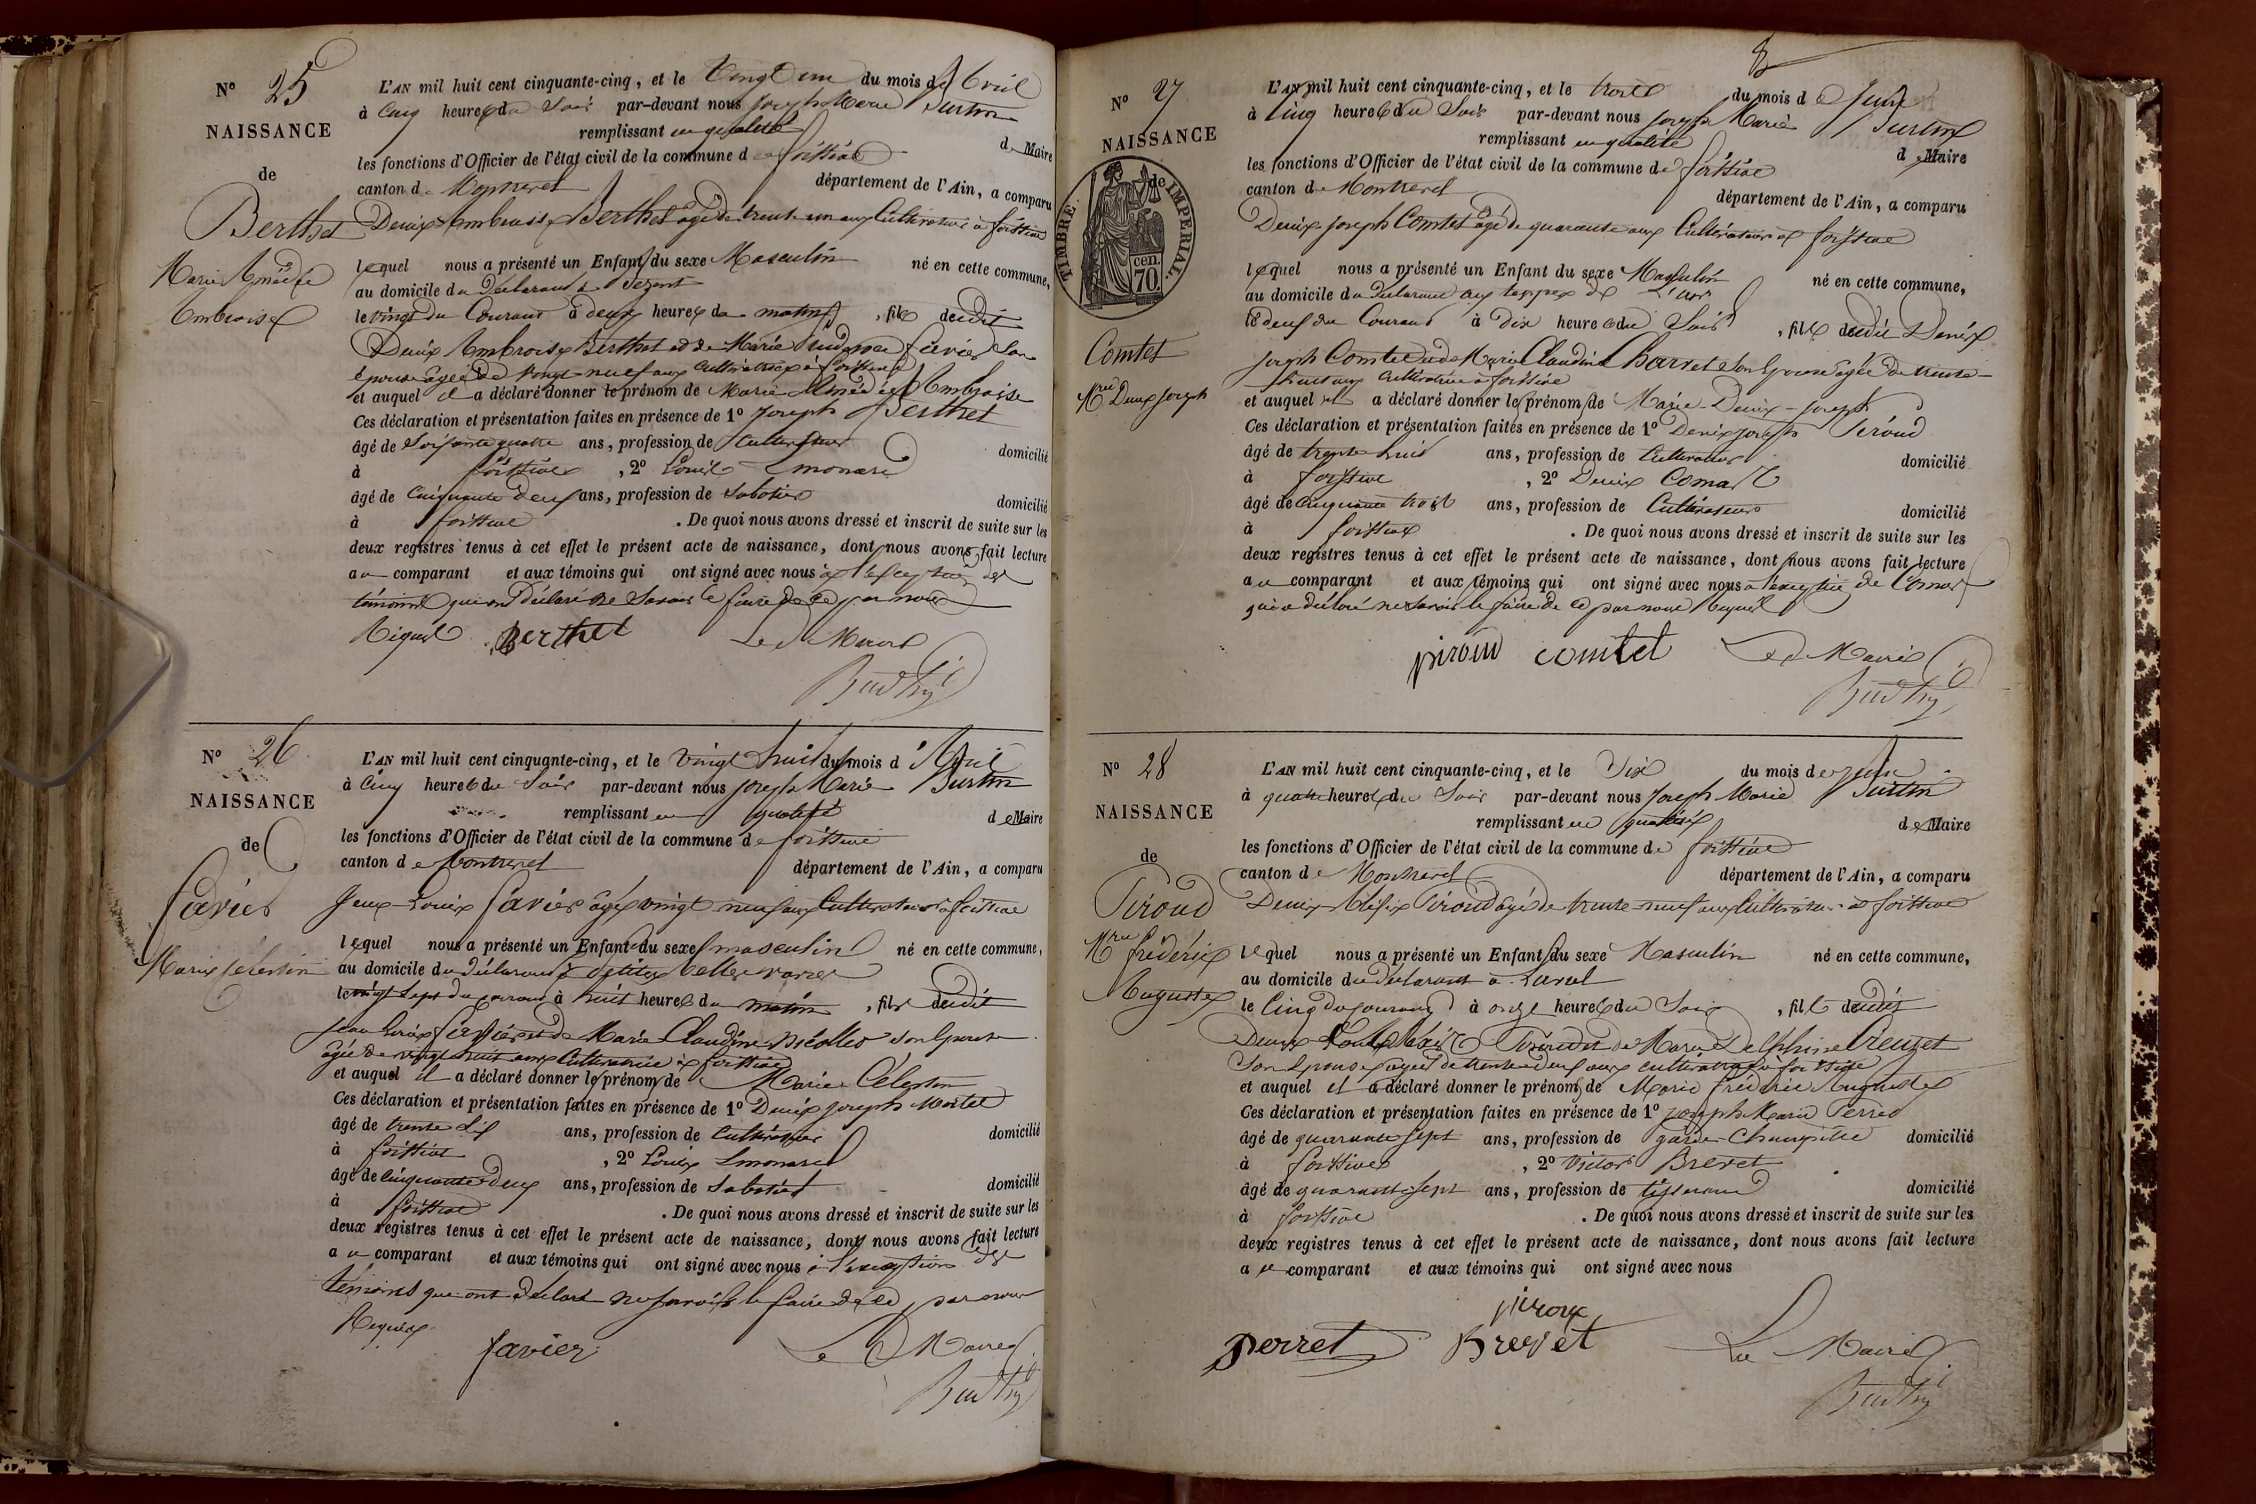 N° 25
NAISSANCE
de
Berthet
Marie Amédée
Ambroise
L'AN mil huit cent cinquante-cinq, et le Vingt un du mois d'Avril
à Cinq heures du Soir par-devant nous Joseph Marie Burtin
remplissant en qualité de Maire
les fonctions d'Officier de l'état civil de la commune de foissiat
canton de Montrevel département de l'Ain, a comparu
Denix Ambroise Berthet âgé de trente un ans Cultivateur à foissiat
lequel nous a présenté un Enfant du sexe Masculin né en cette commune,
au domicile du Déclarant à
le vingt du Courant à deux heures du matin, fils dudit
Denix Ambroise Berthet et de Marie favier Son
épouse âgée de vingt-neuf ans Cultivatrice à foissiat
et auquel il a déclaré donner le prénom de Marie Amédée Ambroise
Ces déclaration et présentation faites en présence de 1° Joseph Berthet
âgé de Soixante quatre ans, profession de Cultivateur domicilié
à foissiat, 2° Louis
âgé de Cinquante deux ans, profession de Sabotier domicilié
à foissiat. De quoi nous avons dressé et inscrit de suite sur les
deux registres tenus à cet effet le présent acte de naissance, dont nous avons fait lecture
au comparant et aux témoins qui ont signé avec nous à l'exception des
témoins qui ont déclaré ne Savoir le faire de ce par nous
Requis Berthet Le Maire
Burtin
N° 26
NAISSANCE
de
favier
Marie Célestin
L'AN mil huit cent cinquante-cinq, et le Vingt huit du mois d'Avril
à Cinq heures du Soir par-devant nous Joseph Marie Burtin
remplissant en qualité de Maire
les fonctions d'Officier de l'état civil de la commune de foissiat
canton de Montrevel département de l'Ain, a comparu
Jean Louis favier âgé vingt neuf ans Cultivateur à foissiat
lequel nous a présenté un Enfant du sexe masculin né en cette commune,
au domicile du Déclarant à
le vingt Sept du courant à huit heures du matin, fils dudit
Jean Louis favier et de Marie Claudine Nicollet son épouse
âgée de vingt huit ans Cultivatrice à foissiat
et auquel il a déclaré donner les prénoms de Marie Célestin
Ces déclaration et présentation faites en présence de 1° Denix Joseph Martel
âgé de trente Six ans, profession de Cultivateur domicilié
à foissiat, 2° Louis
âgé de cinquante deux ans, profession de Sabotier domicilié
à foissiat. De quoi nous avons dressé et inscrit de suite sur les
deux registres tenus à cet effet le présent acte de naissance, dont nous avons fait lecture
au comparant et aux témoins qui ont signé avec nous à l'exception des
témoins qui ont déclaré ne savoir le faire de ce par nous
Requis
favier Le Maire
Burtin
8
N° 27
NAISSANCE
de
TIMBRE IMPERIAL
70 cen.
Comtet
Mrie Denix Joseph
L'AN mil huit cent cinquante-cinq, et le trois du mois de Juin
à Cinq heures du Soir par-devant nous Joseph Marie Burtin
remplissant en qualité de Maire
les fonctions d'Officier de l'état civil de la commune de foissiat
canton de Montrevel département de l'Ain, a comparu
Denix Joseph Comtet âgé de quarante ans Cultivateur à foissiat
lequel nous a présenté un Enfant du sexe Masculin né en cette commune,
au domicile du Déclarant aux
le deux du Courant à Dix heures du Soir, fils dudit Denix
Joseph Comtet et de Marie Claudine Charvet Son épouse âgée de trente-
huit ans Cultivatrice à foissiat
et auquel il a déclaré donner les prénoms de Marie-Denix-Joseph
Ces déclaration et présentation faites en présence de 1° Denix Joseph Piroud
âgé de trente huit ans, profession de Cultivateur domicilié
à foissiat, 2° Denix Comas
âgé de cinquante trois ans, profession de Cultivateur domicilié
à foissiat. De quoi nous avons dressé et inscrit de suite sur les
deux registres tenus à cet effet le présent acte de naissance, dont nous avons fait lecture
au comparant et aux témoins qui ont signé avec nous à l'exception de Comas
qui a déclaré ne Savoir le faire de ce par nous Requis
piroud comtet Le Maire
Burtin
N° 28
NAISSANCE
de
Piroud
Mrie frédéric
Auguste
L'AN mil huit cent cinquante-cinq, et le Six du mois de Juin
à quatre heures du Soir par-devant nous Joseph Marie Burtin
remplissant en qualité de Maire
les fonctions d'Officier de l'état civil de la commune de foissiat
canton de Montrevel département de l'Ain, a comparu
Denix Alexix Piroud âgé de trente-neuf ans Cultivateur à foissiat
lequel nous a présenté un Enfant du sexe Masculin né en cette commune,
au domicile du Déclarant à Laval
le Cinq du courant à onze heures du Soir, fils dudit
Denix Alexis Piroud et de Marie Delphine Creuzet
Son épouse âgée de trente deux ans cultivatrice à foissiat
et auquel il a déclaré donner le prénom de Marie frédéric Auguste
Ces déclaration et présentation faites en présence de 1° Joseph Marie Perret
âgé de quarante sept ans, profession de garde Champêtre domicilié
à foissiat, 2° Victor Brevet
âgé de quarante Sept ans, profession de tisserand domicilié
à foissiat. De quoi nous avons dressé et inscrit de suite sur les
deux registres tenus à cet effet le présent acte de naissance, dont nous avons fait lecture
au comparant et aux témoins qui ont signé avec nous
piroux
perret Brevet Le Maire
Burtin